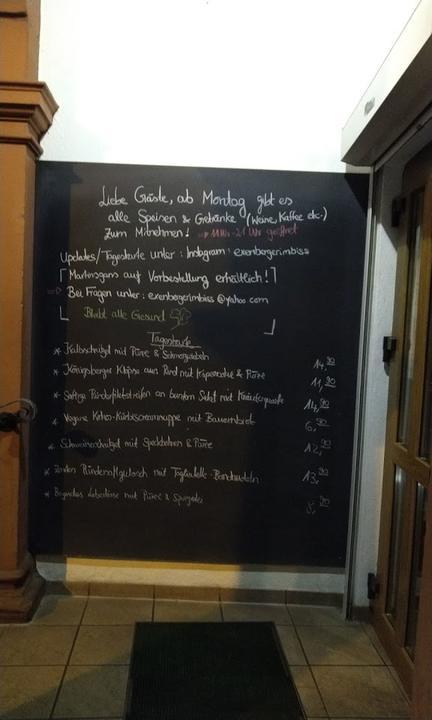 Liebe Gäste, ab Montag gibt es
alle Speisen & Getränke (Weine, Kaffee etc.)
Zum Mitnehmen! 11 Uhr - 21 Uhr geöffnet
Updates/Tageskarte unter: Instagram: exenbergerimbiss
Martinsgans auf Vorbestellung erhältlich!
Bei Fragen unter: exenbergerimbiss@yahoo.com
Bleibt alle Gesund
Tageskarte
* Kalbschnitzel mit Püree & Schmorzwiebeln 14,90
* Königsberger Klopse aus Rind mit Kapernsoße & Püree 11,90
* Saftige Rinderfiletstreifen an buntem Salat mit 14,90
* Vegane Kokos-Kürbiscremesuppe mit Bauernbrot 6,90
* Schweineschnitzel mit Speckbohnen & Püree 12,90
* Rindersaftgulasch mit Tagliatelle-Bandnudeln 13,90
* mit Püree & Spiegelei 8,90